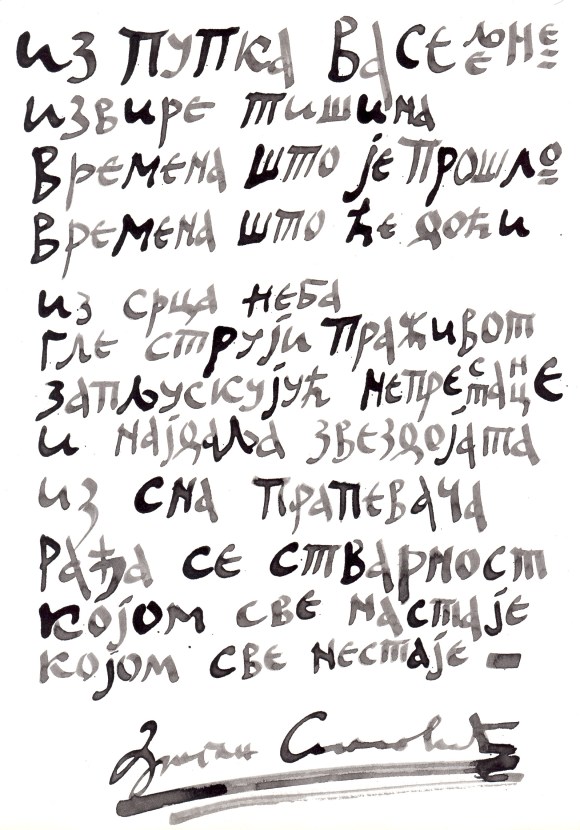 из пупка васељене
извире тишина
времена што је прошло
времена што ће доћи
из срца неба
гле струји праживот
запљускујућ непрестанце
и најдаља звездојата
из сна прапевача
рађа се стварност
којом све настаје
којом све нестаје –
Драган Симовић